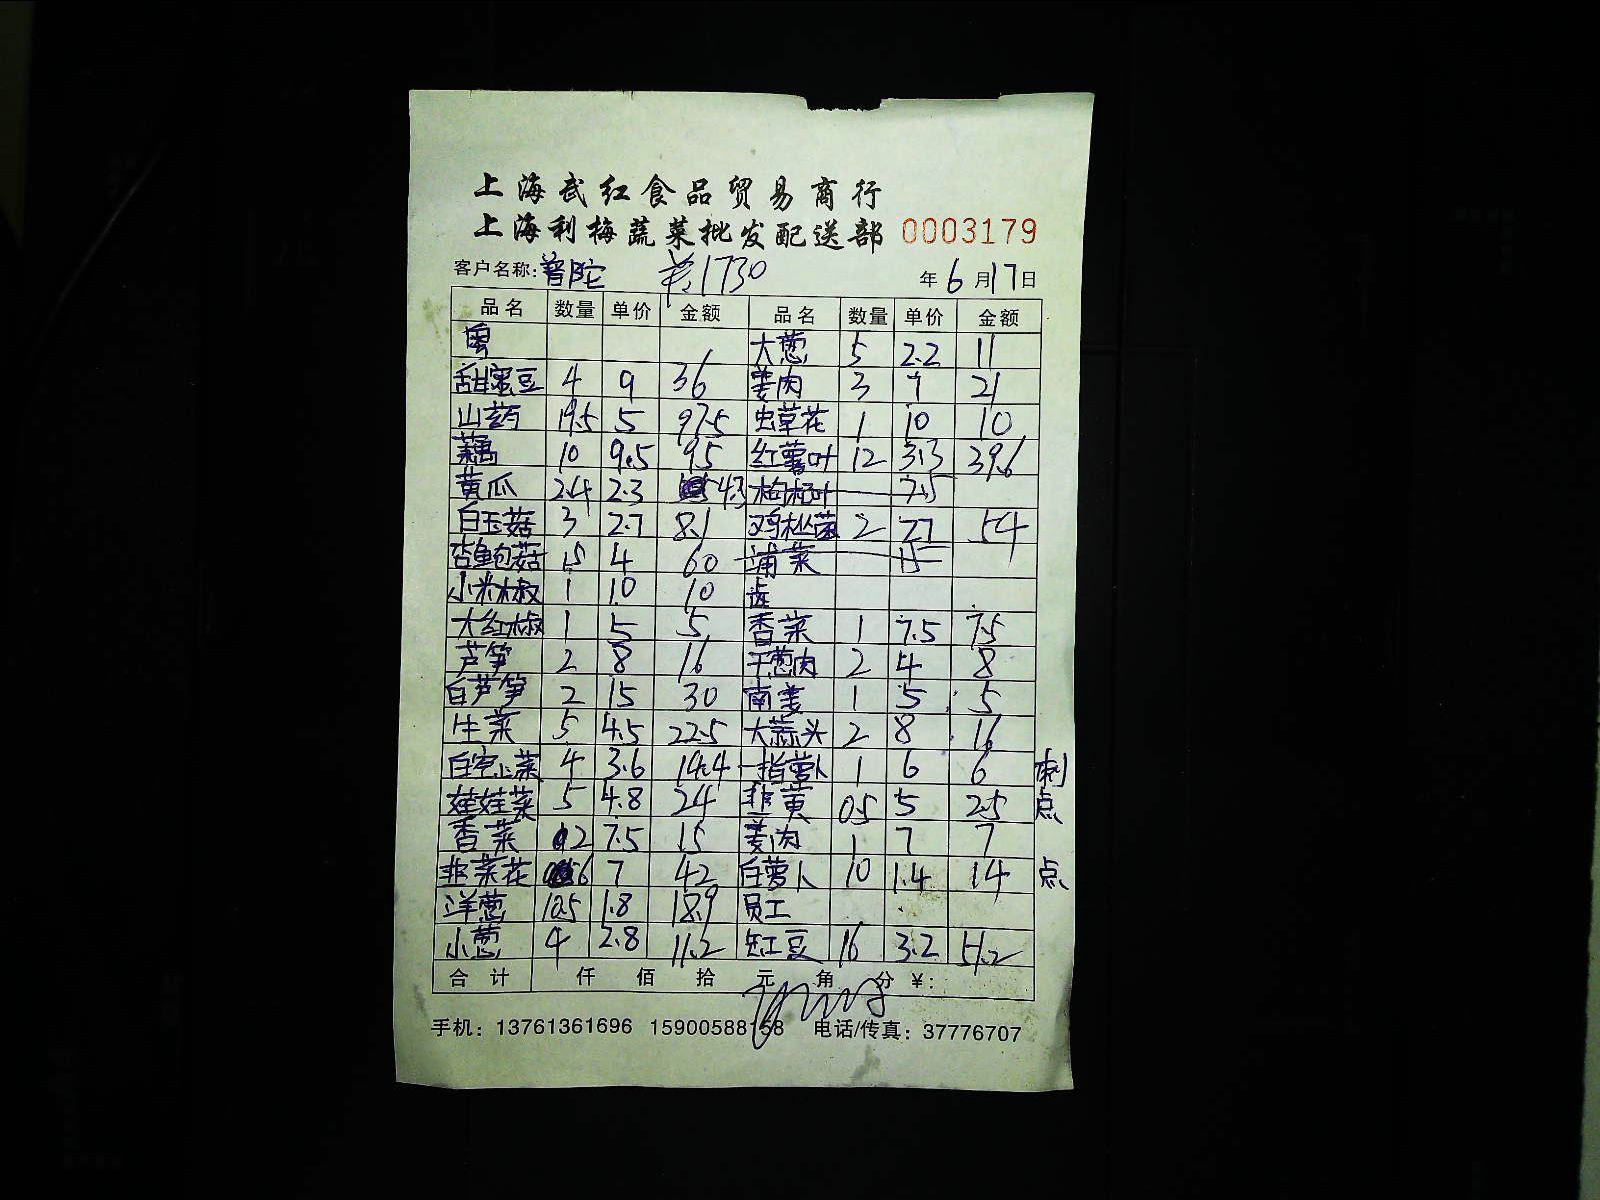 上海武红食品贸易商行
上海利梅蔬菜批发配送部 0003179
客户名称:普陀 1730 年6月17日
品名 数量 单价 金额 品名 数量 单价 金额
大葱 5 2.2 11
甜蜜豆 4 9 36 姜肉 3 7 21
山药 19.5 5 97.5 虫草花 1 10 10
藕 10 9.5 95 红薯叶 12 3.3 39.6
黄瓜 2.4 2.3 枸杞叶 7.5
白玉菇 3 2.7 8.1 鸡枞菌 2 27 54
杏鲍菇 15 4 60 菜 15
小米椒 1 10 10 卤
大红椒 1 5 5 香菜 1 7.5 7.5
芦笋 2 8 16 干葱肉 2 4 8
白芦笋 2 15 30 南姜 1 5 5
生菜 5 4.5 22.5 大蒜头 2 8 16
白空心菜 4 3.6 14.4 一指萝卜 1 6 6 刺
娃娃菜 5 4.8 24 韭黄 0.5 5 2.5 点
香菜 2 7.5 15 姜肉 1 7 7
韭菜花 6 7 42 白萝卜 10 1.4 14 点
洋葱 10.5 1.8 18.9 员工
小葱 4 2.8 11.2 缸豆 16 3.2 51.2
合计 仟 佰 拾 元 角 分 ¥:
手机：13761361696 15900588158 电话/传真：37776707